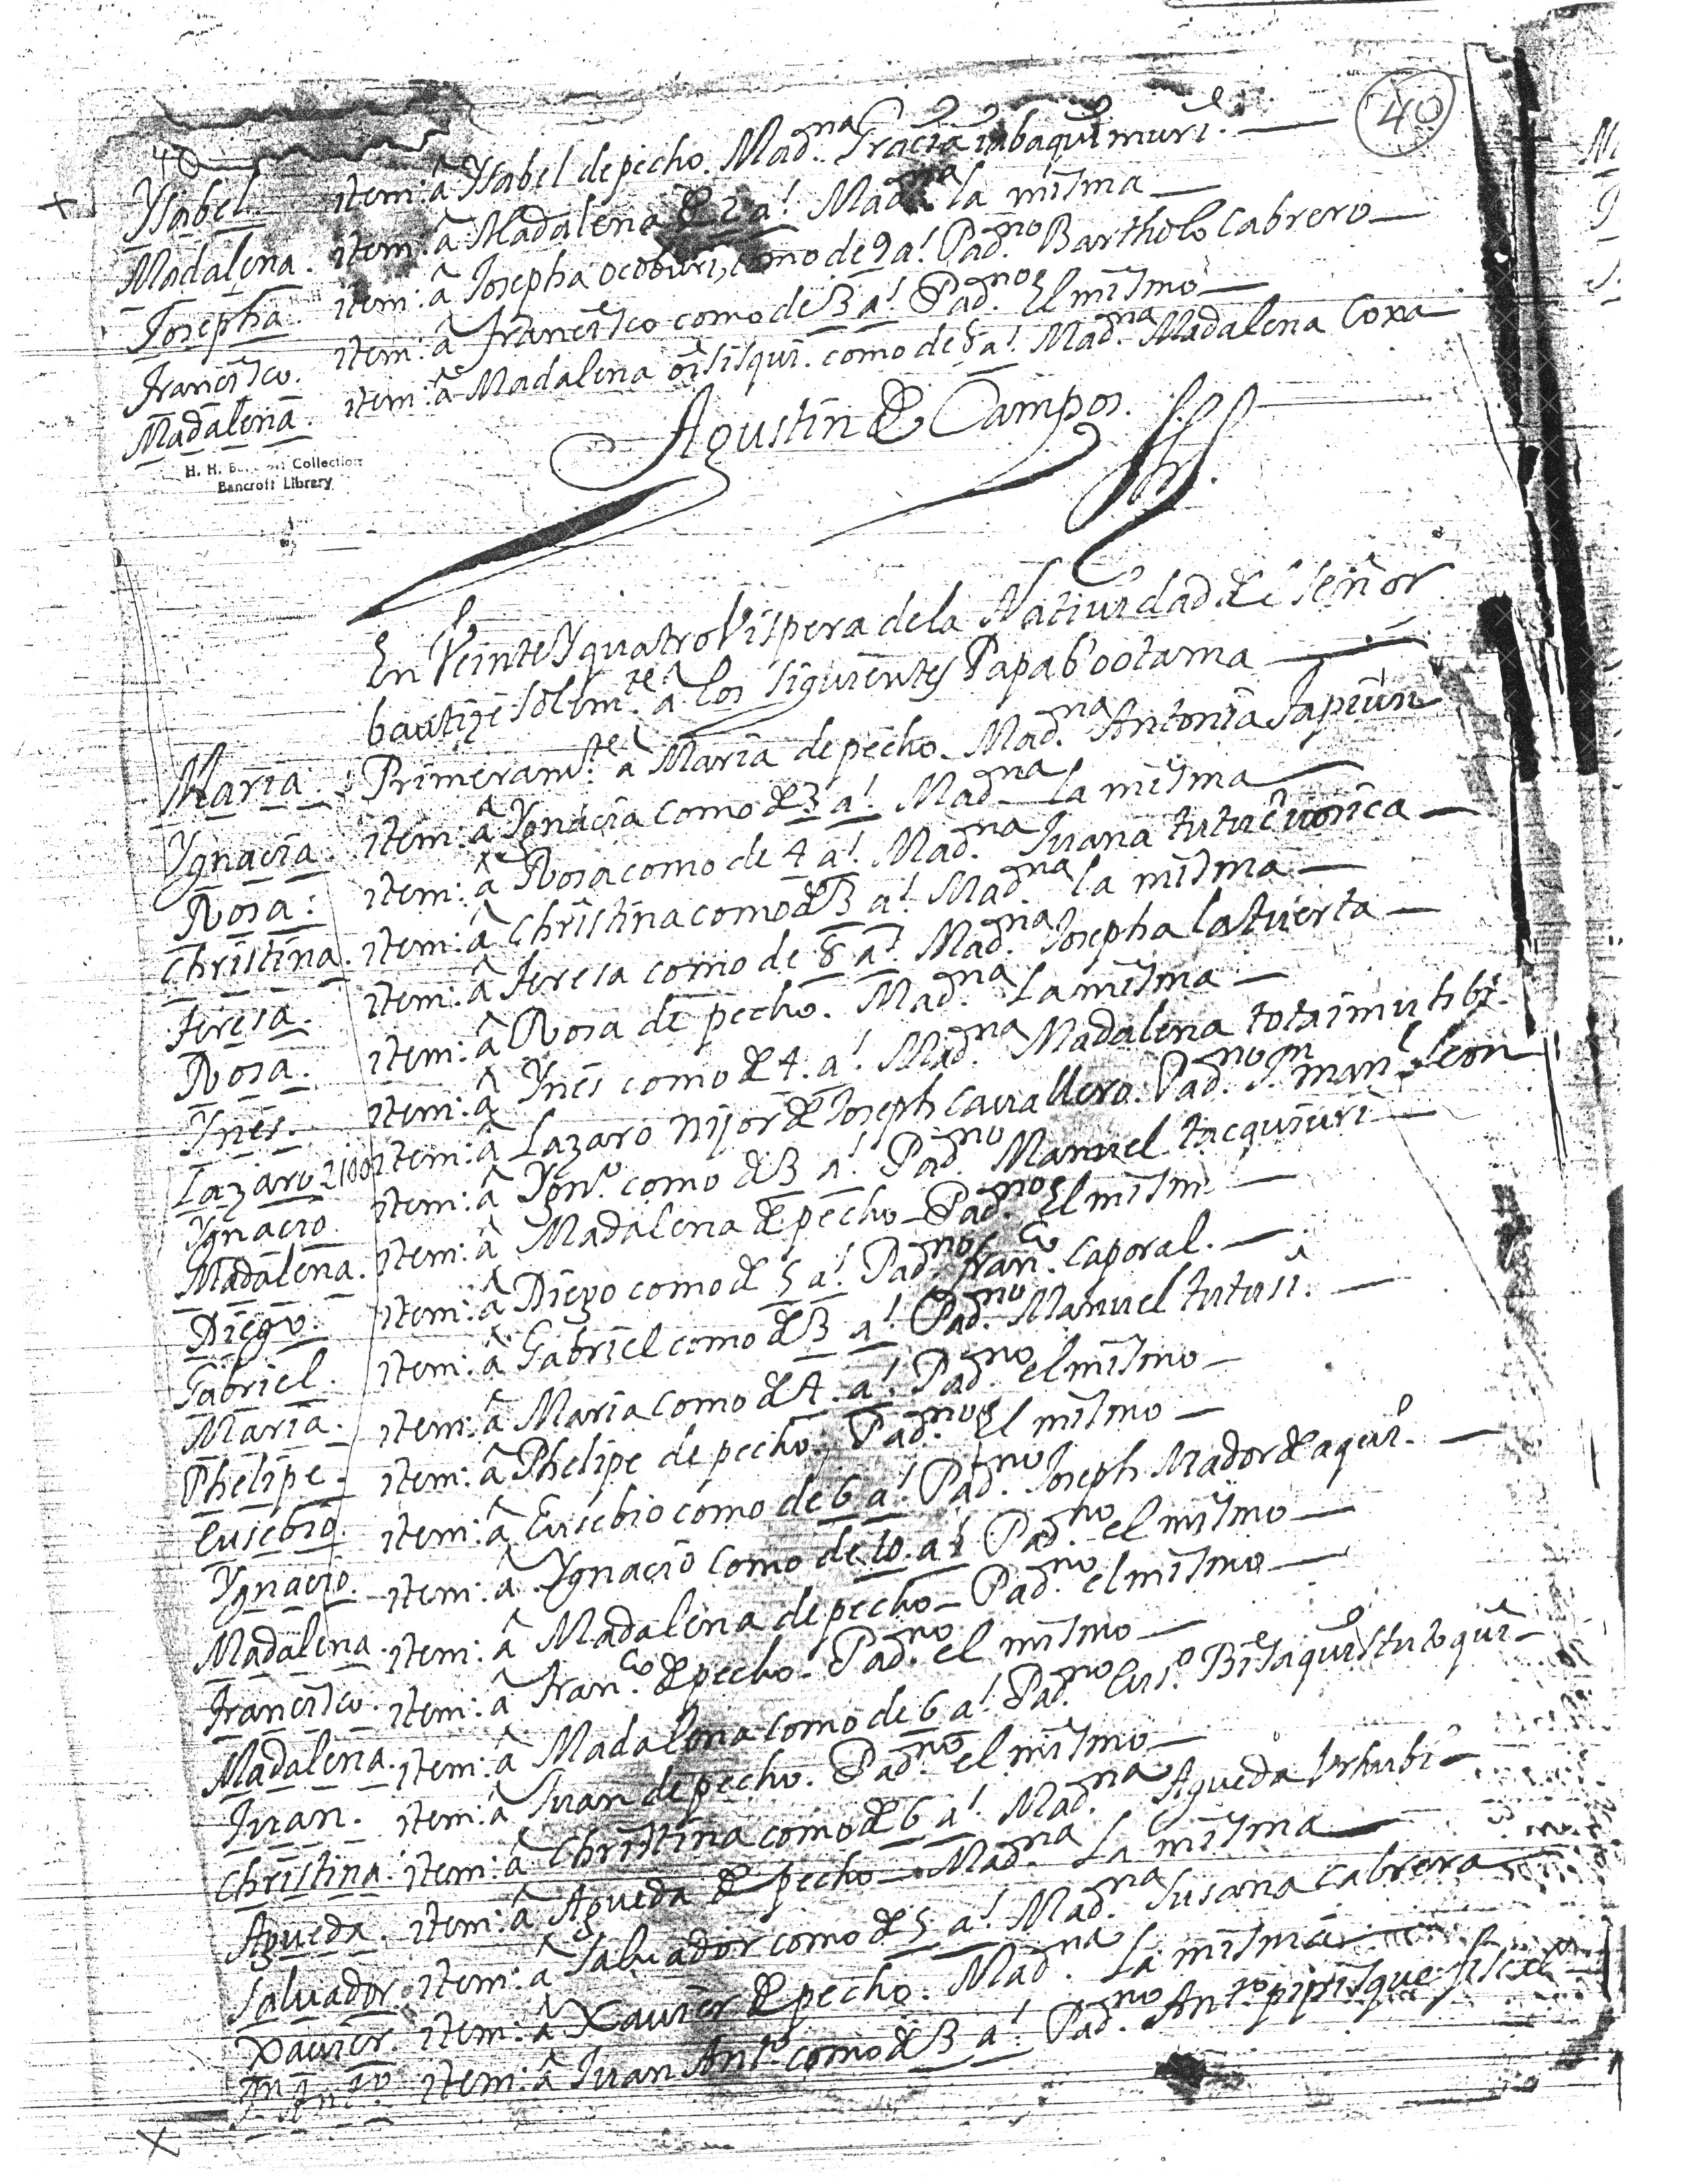 40
40
Ysabel. item: â Ysabel de pecho. Mad.na Gracia
Madalena. item: â Madalena de 2 a.s Mad.na la misma
Josepha. item: â Josepha ocoburi, como de 9 a.s Pad.no Bartholo Cabrero
Francisco. item: â Francisco como de 3 a.s Pad.no El mismo
Madalena. item: â Madalena como de 8 a.s Mad.na Madalena Coxa
Agustin de Campos.
H. H. Bancroft Collection
Bancroft Library
En Veinte Y quatro Vispera de la Natiuidad del Señor
bautizé solem.te â los siguientes Papabootama
Maria. Primeram.te â Maria de pecho. Mad.na Antonia
Ygnacia. item: â Ygnacia como de 3 a.s Mad.na la misma
Rosa: item: â Rosa como de 4 a.s Mad.na Juana
Christina. item: â Christina como de 3 a.s Mad.na la misma
Teresa. item: â Teresa como de 8 a.s Mad.na Josepha la tuerta
Rosa. item: â Rosa de pecho. Mad.na La misma
Ynes. item: â Ynes como de 4. a.s Mad.na Madalena
Lazaro 2100 item: â Lazaro hijo de Joseph Cauallero. Pad.no Man.l Leon
Ygnacio. item: â Ygn.o como de 3 a.s Pad.no Manuel tacquiuri
Madalena. item: â Madalena de pecho Pad.no El mism.o
Diego. item: â Diego como de 5 a.s Pad.no fran.co caporal.
Gabriel. item: â Gabriel como de 3 a.s Pad.no Manuel tutusi.
Maria. item: â Maria como de 4. a.s Pad.no el mismo
Phelipe. item: â Phelipe de pecho, Pad.no El mismo
Eusebio. item: â Eusebio como de 6 a.s Pad.no Joseph Mador de aqui.
Ygnacio. item: â Ygnacio como de 10. a.s Pad.no el mismo
Madalena. item: â Madalena de pecho Pad.no el mismo
Francisco. item: â Fran.co de pecho. Pad.no el mismo
Madalena. item: â Madalena como de 6 a.s Pad.no Eus.o
Juan. item: â Juan de pecho. Pad.no el mismo
Christina. item: â Christina como de 6 a.s Mad.na Agueda
Agueda. item: â Agueda de pecho Mad.na La misma
Saluador. item: â Saluador como de 5 a.s Mad.na Susana Cabrera
Xauier. item: â Xauier de pecho. Mad.na La misma
J.n Ant.o item: â Juan Ant.o como de 3 a.s Pad.no Ant.o